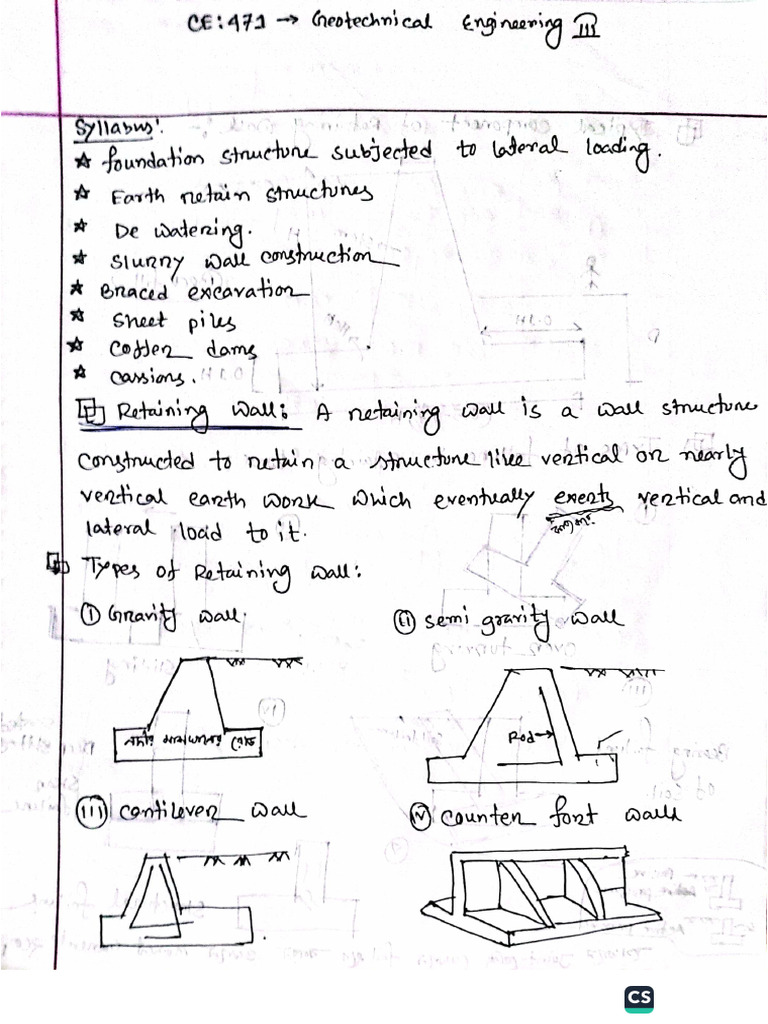 CE:471 → Geotechnical Engineering III
Syllabus:
☆ foundation structure subjected to lateral loading.
☆ Earth retain structures
☆ De watering.
☆ Slurry wall construction
☆ Braced excavation
☆ Sheet piles
☆ Coffer dams
☆ cassions.
Retaining wall: A retaining wall is a wall structure
constructed to retain a structure like vertical or nearly
vertical earth work which eventually exerts vertical and
lateral load to it.
Types of Retaining wall:
(I) Gravity wall.
(II) semi gravity wall
নদীর
Rod→
(III) cantilever wall
(IV) counter fort walls
CS